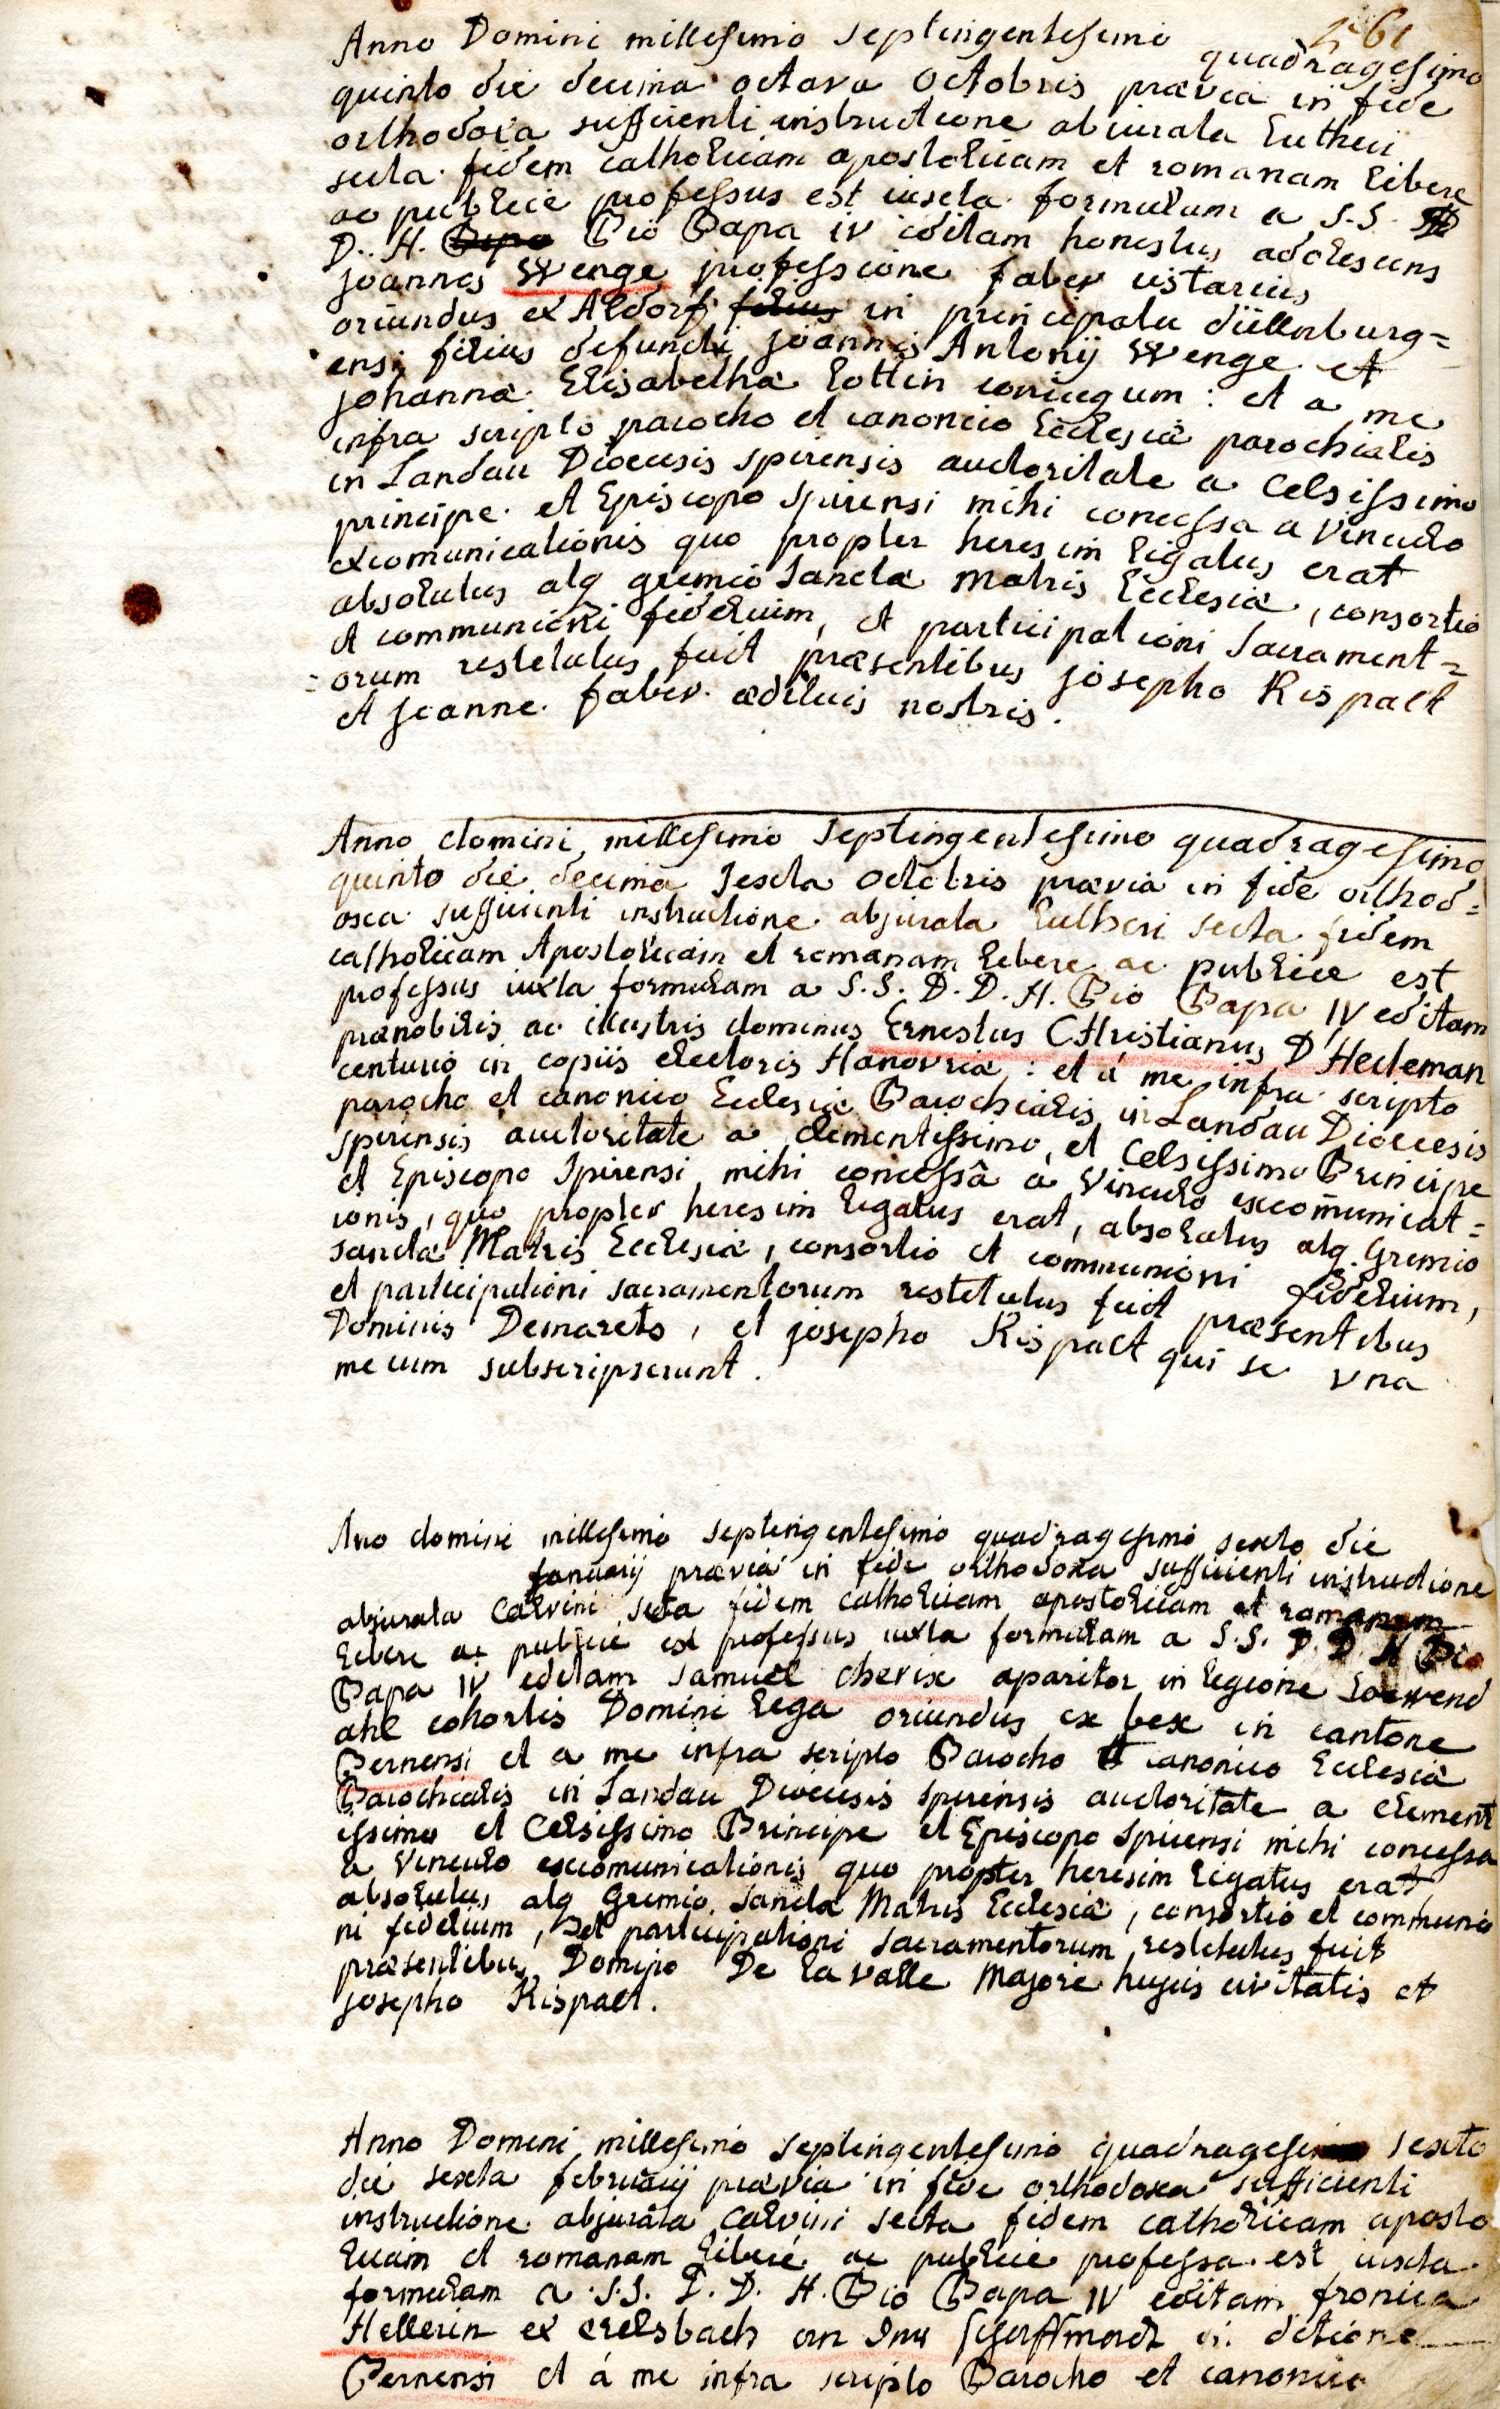 261
Anno Domini millesimo septingentesimo quadragesimo
quinto die decima octava octobris prævia in fide
orthodoxa sufficienti instructione abiurata Lutheri
secta fidem catholicam apostolicam et romanam libere
ac publice professus est iuxta formulam a S.S.
D. H. Pio Papa IV editam honestus adolescens
joannes Wenge professione faber
oriundus ex Aldorf filius in principatu dillenburg=
ensi filius defuncti joannis Antonij Wenge et
johanna Elisabetha Lottin coniugum : et a me
infra scripto parocho et canonico Ecclesiæ parochialis
in Landau Diocesis spirensis auctoritate a Celsissimo
principe et Episcopo spirensi mihi concessa a vinculo
excomunicationis quo propter heresim ligatus erat
absolutus atq gremio sanctæ matris Ecclesiæ, consortio
et communioni fidelium, et participationi sacrament=
orum restitutus fuit præsentibus josepho Rispalt
et joanne faber ædituis nostris.
Anno domini millesimo septingentesimo quadragesimo
quinto die decima sexta octobris prævia in fide orthod=
oxa sufficienti instructione abjurata Lutheri secta fidem
catholicam Apostolicam et romanam libere ac publice est
professus iuxta formulam a S.S. D. D. H. Pio Papa IV editam
prænobilis ac illustris dominus Ernestus CHristianus D'Hedeman
centurio in copiis electoris Hanovriæ : et á me infra scripto
parocho et canonico Ecclesiæ Parochialis in Landau Dioecesis
spirensis auctoritate a clementissimo, et Celsissimo Principe
et Episcopo Spirensi mihi concessâ a vinculo excomunicat=
ionis, quo propter heresim ligatus erat, absolutus atq Gremio
sanctæ Matris Ecclesiæ, consortio et communioni fidelium,
et participationi sacramentorum restitutus fuit præsentibus
Dominis Demarets, et josepho Rispalt qui se una
mecum subscripserunt.
Ano domini millesimo septingentesimo quadragesimo sexto die
januarij prævia in fide orthodoxa sufficienti instructione
abjurata Calvini secta fidem catholicam apostolicam et romanam
libere ac publice est professus iuxta formulam a S.S. D. D. H Pio
Papa IV editam samuel cherix aparitor in legione Loewend
ahl cohortis Domini Lega oriundus ex bex in cantone
Bernensi et a me infra scripto Parocho et canonico Ecclesiæ
Parochialis in Landau Diocesis spirensis auctoritate a clement
issimo et Celsissimo Principe et Episcopo Spirensi mihi concessa
a vinculo excomunicationis quo propter heresim ligatus erat,
absolutus atq Gremio sanctæ Matris Ecclesiæ, consortio et communio
ni fidelium, et participationi sacramentorum restitutus fuit
præsentibus Domino De la valle Majore hujus civitatis et
josepho Rispalt.
Anno Domini millesimo septingentesimo quadragesimo sexto
die sexta februarij prævia in fide orthodoxa sufficienti
instructione abjurata Calvini secta fidem catholicam aposto
licam et romanam liberé ac publice professa est iuxta
formulam a S.S. D. D. H. Pio Papa IV editam fronica
Hellerin ex erelsbach in ditione
Bernensi et á me infra scripto Parocho et canonico